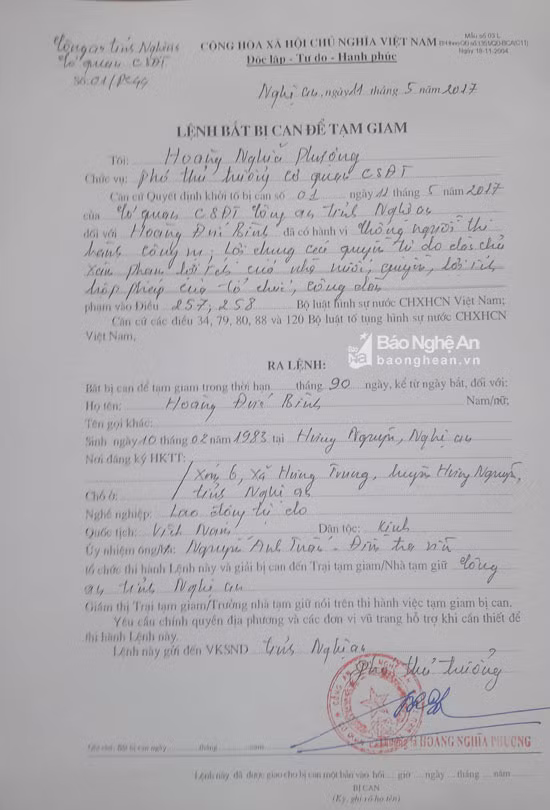 Công an tỉnh Nghệ an
Cơ quan CSĐT
Số 01/PC44
Mẫu số 03 L
Ngày 18-11-2004
CỘNG HÒA XÃ HỘI CHỦ NGHĨA VIỆT NAM
Độc lập - Tự do - Hạnh phúc
Nghệ an, ngày 11 tháng 5 năm 2017
LỆNH BẮT BỊ CAN ĐỂ TẠM GIAM
Tôi: Hoàng Nghĩa Phượng
Chức vụ: Phó thủ trưởng cơ quan CSĐT
Căn cứ Quyết định khởi tố bị can số 01 ngày 11 tháng 5 năm 2017
của Cơ quan CSĐT Công an tỉnh Nghệ an
đối với Hoàng Đức Bình đã có hành vi chống người thi
hành công vụ; Lợi dụng các quyền tự do dân chủ
xâm phạm lợi ích của nhà nước, quyền, lợi ích
hợp pháp của tổ chức, công dân
phạm vào Điều 257, 258 Bộ luật hình sự nước CHXHCN Việt Nam;
Căn cứ các điều 34, 79, 80, 88 và 120 Bộ luật tố tụng hình sự nước CHXHCN
Việt Nam,
Báo Nghệ An
baonghean.vn
RA LỆNH:
Bắt bị can để tạm giam trong thời hạn tháng 90 ngày, kể từ ngày bắt, đối với:
Họ tên: Hoàng Đức Bình Nam/nữ:
Tên gọi khác:
Sinh ngày 10 tháng 02 năm 1983 tại Hưng Nguyên, Nghệ an
Nơi đăng ký HKTT:
Xóm 6, xã Hưng Trung, huyện Hưng Nguyên,
Chỗ ở: tỉnh Nghệ an
Nghề nghiệp: Lao động tự do
Quốc tịch: Việt Nam Dân tộc: Kinh
Ủy nhiệm ông/bà: Nguyễn Anh Tuấn - Điều tra viên
tổ chức thi hành Lệnh này và giải bị can đến Trại tạm giam/Nhà tạm giữ Công
an tỉnh Nghệ an
Giám thị Trại tạm giam/Trưởng nhà tạm giữ nói trên thi hành việc tạm giam bị can.
Yêu cầu chính quyền địa phương và các đơn vị vũ trang hỗ trợ khi cần thiết để
thi hành Lệnh này.
Lệnh này gửi đến VKSND tỉnh Nghệ an
Phó thủ trưởng
HOÀNG NGHĨA PHƯỢNG
Ghi chú: Bắt bị can ngày tháng năm
Lệnh này đã được giao cho bị can một bản vào hồi giờ ngày tháng năm
BỊ CAN
(Ký, ghi rõ họ tên)